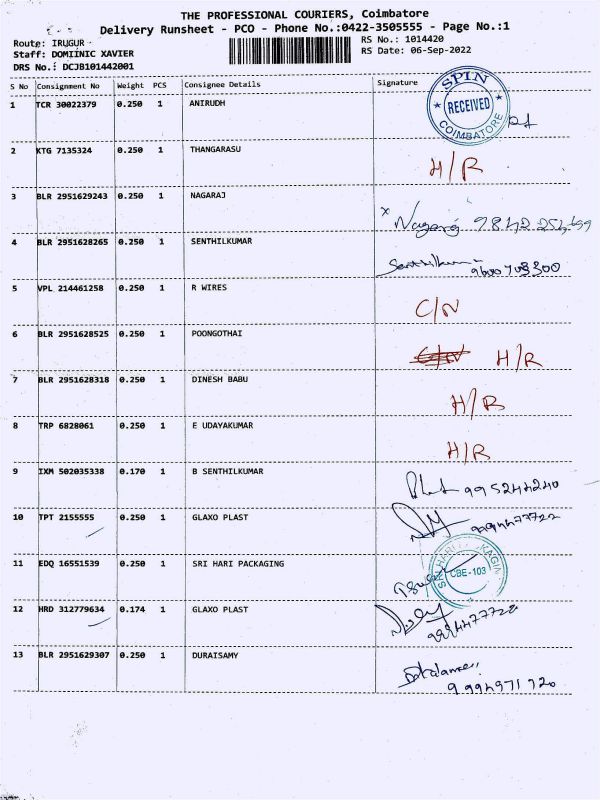 THE PROFESSIONAL COURIERS, Coimbatore
Delivery Runsheet - PCO - Phone No.:0422-3505555 - Page No.:1
Route: IRUGUR
RS No.: 1014420
Staff: DOMIINIC XAVIER
RS Date: 06-Sep-2022
DRS No.: DCJB101442001
S No Consignment No Weight PCS Consignee Details Signature
1 TCR 30022379 0.250 1 ANIRUDH
SPIN RECEIVED COIMBATORE
2 KTG 7135324 0.250 1 THANGARASU H/R
3 BLR 2951629243 0.250 1 NAGARAJ x Nagaraj
4 BLR 2951628265 0.250 1 SENTHILKUMAR Senthilkumar 9600703300
5 VPL 214461258 0.250 1 R WIRES C/N
6 BLR 2951628525 0.250 1 POONGOTHAI H/R
7 BLR 2951628318 0.250 1 DINESH BABU H/R
8 TRP 6828061 0.250 1 E UDAYAKUMAR H/R
9 IXM 502035338 0.170 1 B SENTHILKUMAR 9952444240
10 TPT 2155555 0.250 1 GLAXO PLAST 9994477722
11 EDQ 16551539 0.250 1 SRI HARI PACKAGING
CBE-103
12 HRD 312779634 0.174 1 GLAXO PLAST
13 BLR 2951629307 0.250 1 DURAISAMY 9994971720